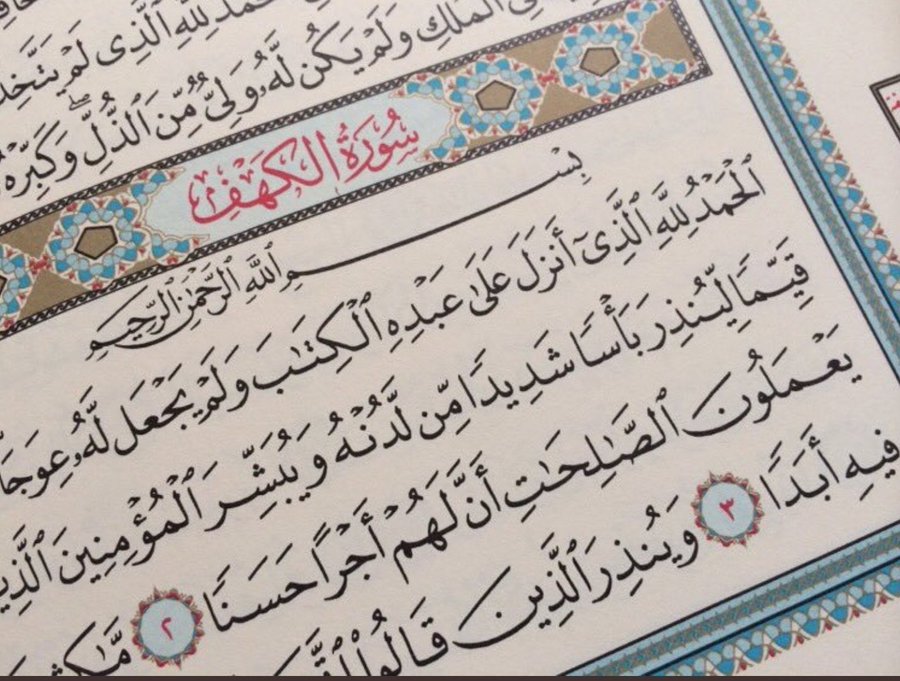 ٱلْحَمْدُ لِلَّهِ ٱلَّذِى لَمْ يَتَّخِذْ
ٱلْمُلْكِ وَلَمْ يَكُن لَّهُۥ وَلِىٌّ مِّنَ ٱلذُّلِّ ۖ وَكَبِّرْهُ
سُورَةُ الكَهْفِ
بِسْمِ ٱللَّهِ ٱلرَّحْمَٰنِ ٱلرَّحِيمِ
ٱلْحَمْدُ لِلَّهِ ٱلَّذِىٓ أَنزَلَ عَلَىٰ عَبْدِهِ ٱلْكِتَٰبَ وَلَمْ يَجْعَل لَّهُۥ عِوَجَا
قَيِّمًا لِّيُنذِرَ بَأْسًا شَدِيدًا مِّن لَّدُنْهُ وَيُبَشِّرَ ٱلْمُؤْمِنِينَ
يَعْمَلُونَ ٱلصَّٰلِحَٰتِ أَنَّ لَهُمْ أَجْرًا حَسَنًا ٢
فِيهِ أَبَدًا ٣ وَيُنذِرَ ٱلَّذِينَ قَالُوا۟